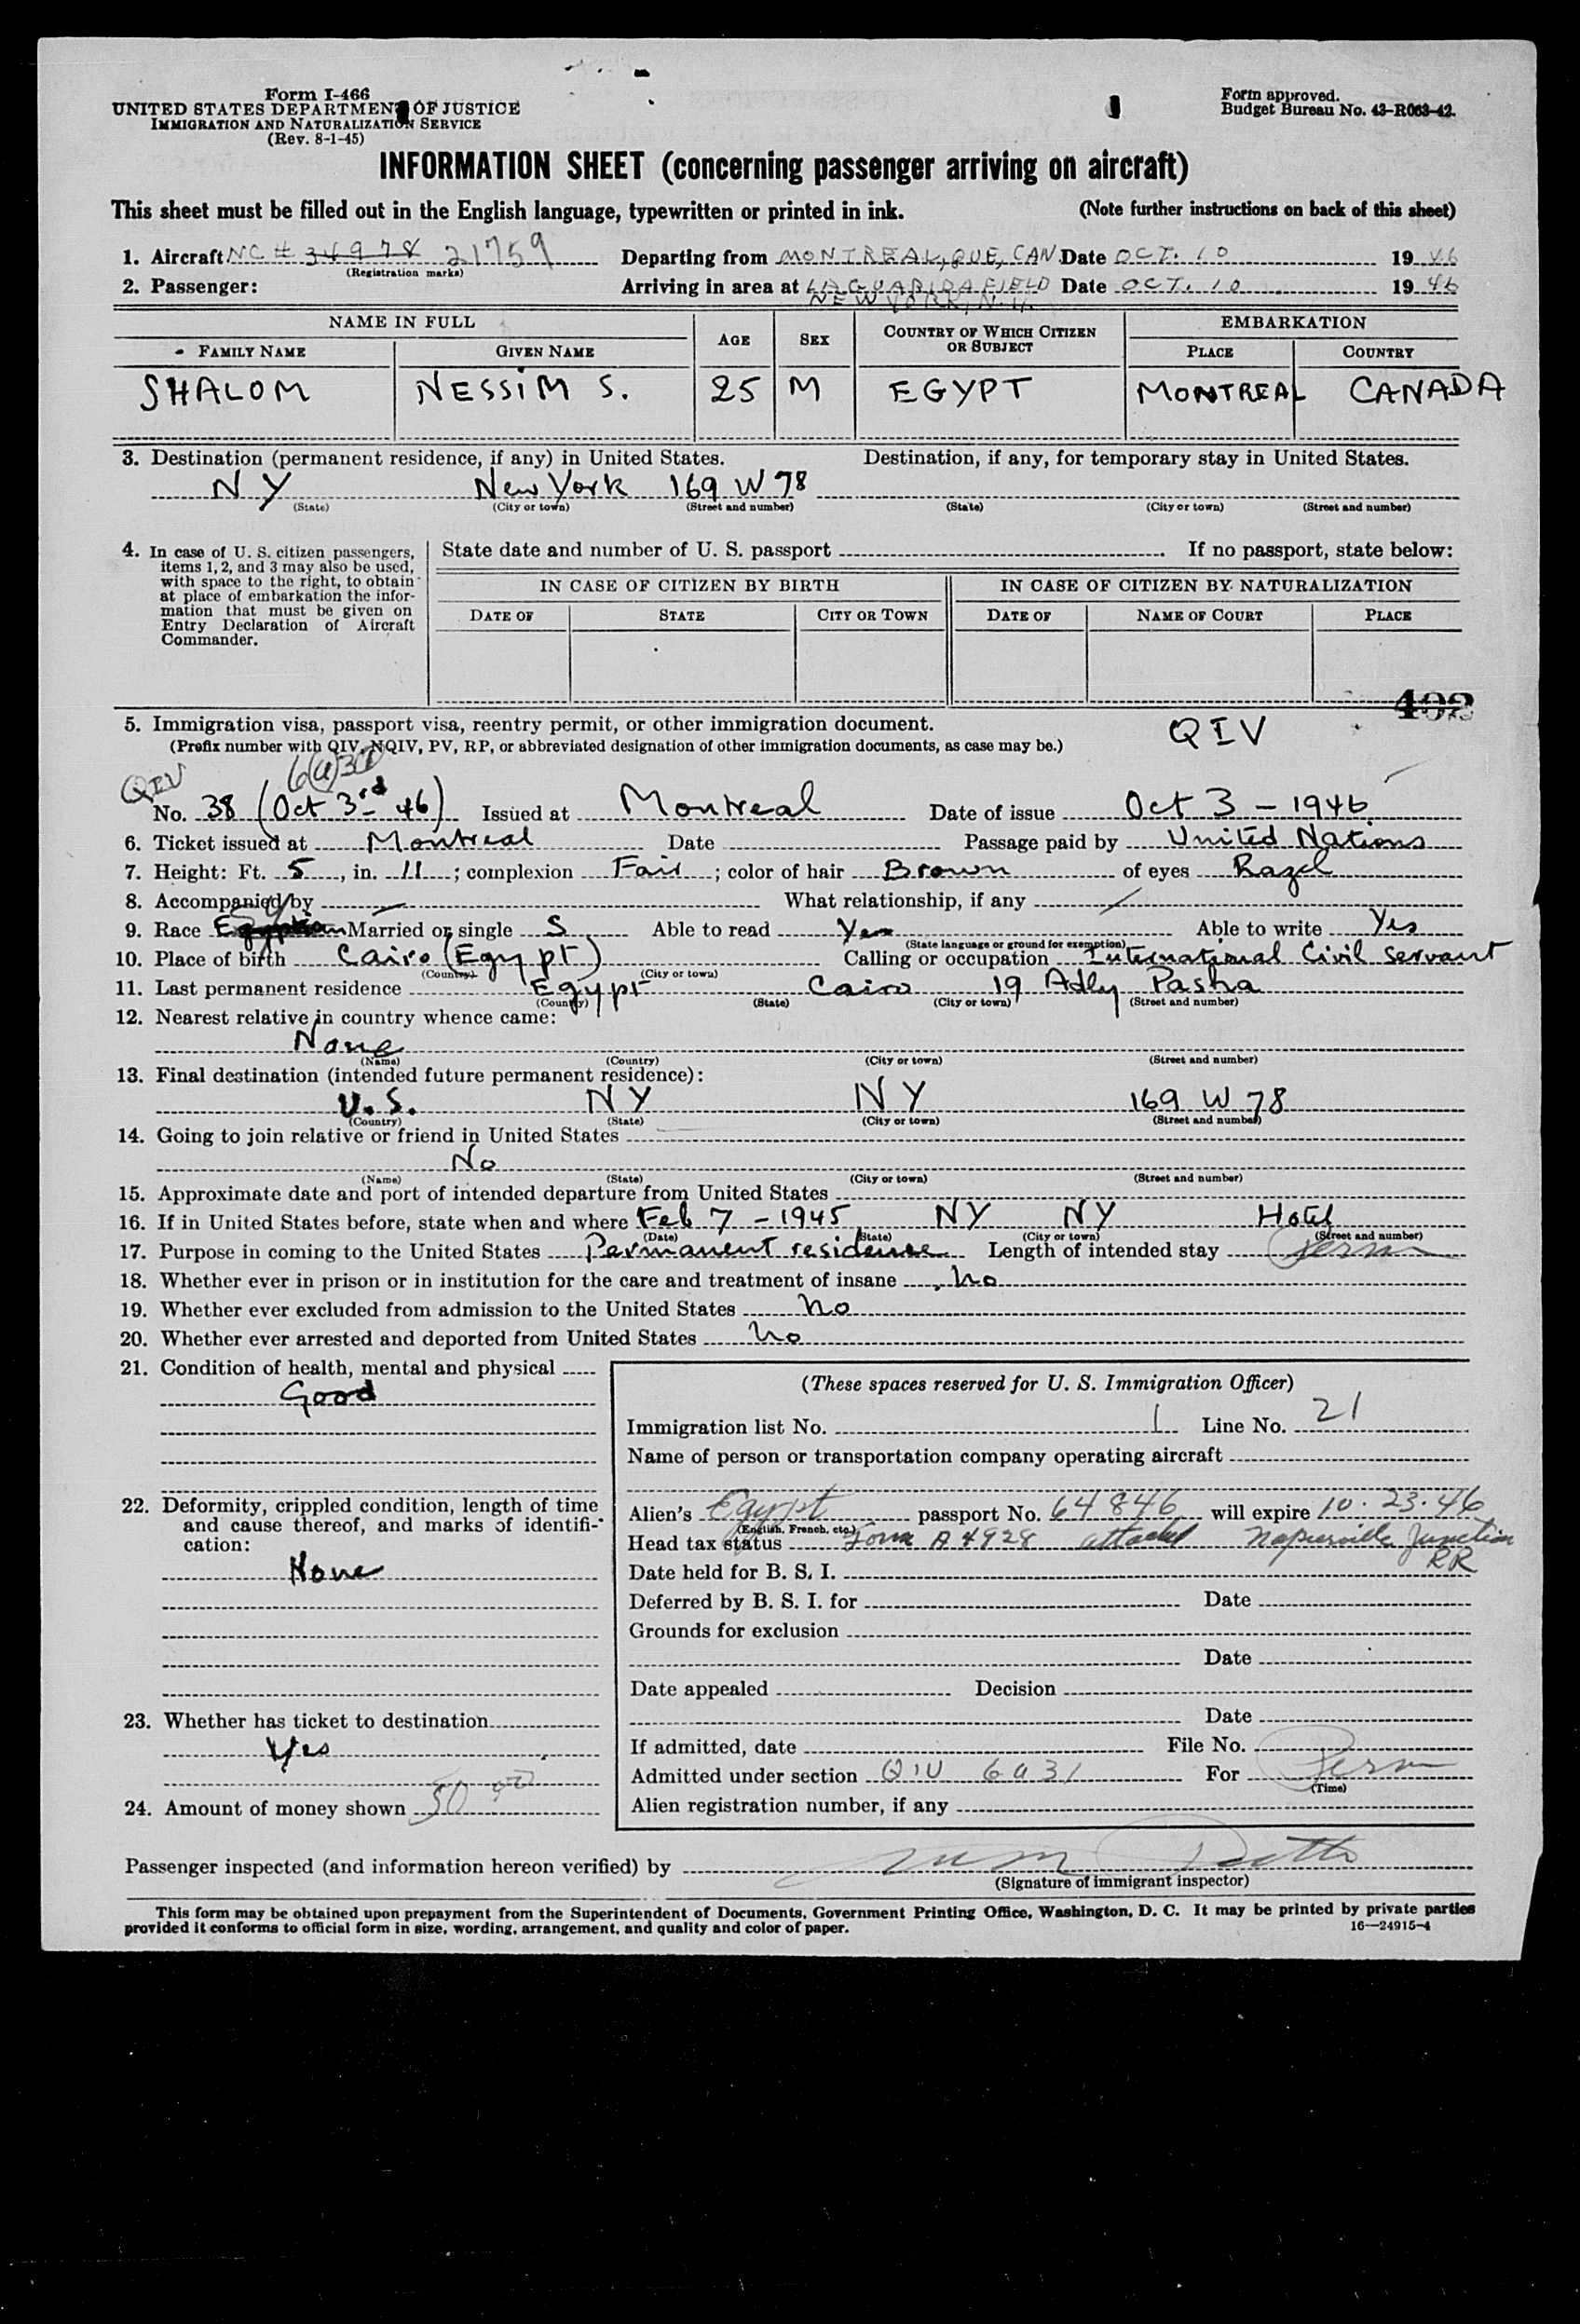 Form I-466
UNITED STATES DEPARTMENT OF JUSTICE
IMMIGRATION AND NATURALIZATION SERVICE
(Rev. 8-1-45)
Form approved.
Budget Bureau No. 43-R063-42.
INFORMATION SHEET (concerning passenger arriving on aircraft)
This sheet must be filled out in the English language, typewritten or printed in ink. (Note further instructions on back of this sheet)
1. Aircraft NC # 34978 21759 Departing from MONTREAL, QUE, CAN. Date OCT. 10 1946
(Registration marks)
2. Passenger: Arriving in area at LAGUARIDA FIELD Date OCT. 10 1946
NEW YORK, N.Y.
NAME IN FULL AGE SEX COUNTRY OF WHICH CITIZEN OR SUBJECT EMBARKATION
FAMILY NAME GIVEN NAME PLACE COUNTRY
SHALOM NESSIM S. 25 M EGYPT MONTREAL CANADA
3. Destination (permanent residence, if any) in United States. Destination, if any, for temporary stay in United States.
NY New York 169 W 78
(State) (City or town) (Street and number) (State) (City or town) (Street and number)
4. In case of U. S. citizen passengers, items 1, 2, and 3 may also be used, with space to the right, to obtain at place of embarkation the information that must be given on Entry Declaration of Aircraft Commander.
State date and number of U. S. passport If no passport, state below:
IN CASE OF CITIZEN BY BIRTH IN CASE OF CITIZEN BY NATURALIZATION
DATE OF STATE CITY OR TOWN DATE OF NAME OF COURT PLACE
492
5. Immigration visa, passport visa, reentry permit, or other immigration document. QIV
(Prefix number with QIV, NQIV, PV, RP, or abbreviated designation of other immigration documents, as case may be.)
QIV
No. 38 (Oct 3rd 46) Issued at Montreal Date of issue Oct 3 - 1946
6. Ticket issued at Montreal Date Passage paid by United Nations
7. Height: Ft. 5, in. 11; complexion Fair; color of hair Brown of eyes Hazel
8. Accompanied by — What relationship, if any /
9. Race Married or single S Able to read Yes Able to write Yes
(State language or ground for exemption)
10. Place of birth Cairo (Egypt) Calling or occupation International Civil Servant
(Country) (City or town)
11. Last permanent residence Egypt Cairo 19 Adly Pasha
(Country) (State) (City or town) (Street and number)
12. Nearest relative in country whence came:
None
(Name) (Country) (City or town) (Street and number)
13. Final destination (intended future permanent residence):
U.S. NY NY 169 W 78
(Country) (State) (City or town) (Street and number)
14. Going to join relative or friend in United States
No
(Name) (State) (City or town) (Street and number)
15. Approximate date and port of intended departure from United States
16. If in United States before, state when and where Feb 7 - 1945 NY NY Hotel
(Date) (State) (City or town) (Street and number)
17. Purpose in coming to the United States Permanent residence Length of intended stay Perm
18. Whether ever in prison or in institution for the care and treatment of insane no
19. Whether ever excluded from admission to the United States no
20. Whether ever arrested and deported from United States no
21. Condition of health, mental and physical
Good
22. Deformity, crippled condition, length of time and cause thereof, and marks of identification:
None
23. Whether has ticket to destination
Yes
24. Amount of money shown 50 00
(These spaces reserved for U. S. Immigration Officer)
Immigration list No. 1 Line No. 21
Name of person or transportation company operating aircraft
Alien's Egypt passport No. 64846 will expire 10.23.46
(English, French, etc.)
Head tax status Form A 4928 attached Napierville Junction
RR
Date held for B. S. I.
Deferred by B. S. I. for Date
Grounds for exclusion
Date
Date appealed Decision
Date
If admitted, date File No.
Admitted under section QIV 6a31 For Perm
(Time)
Alien registration number, if any
Passenger inspected (and information hereon verified) by
(Signature of immigrant inspector)
This form may be obtained upon prepayment from the Superintendent of Documents, Government Printing Office, Washington, D. C. It may be printed by private parties
provided it conforms to official form in size, wording, arrangement, and quality and color of paper. 16—24915-4